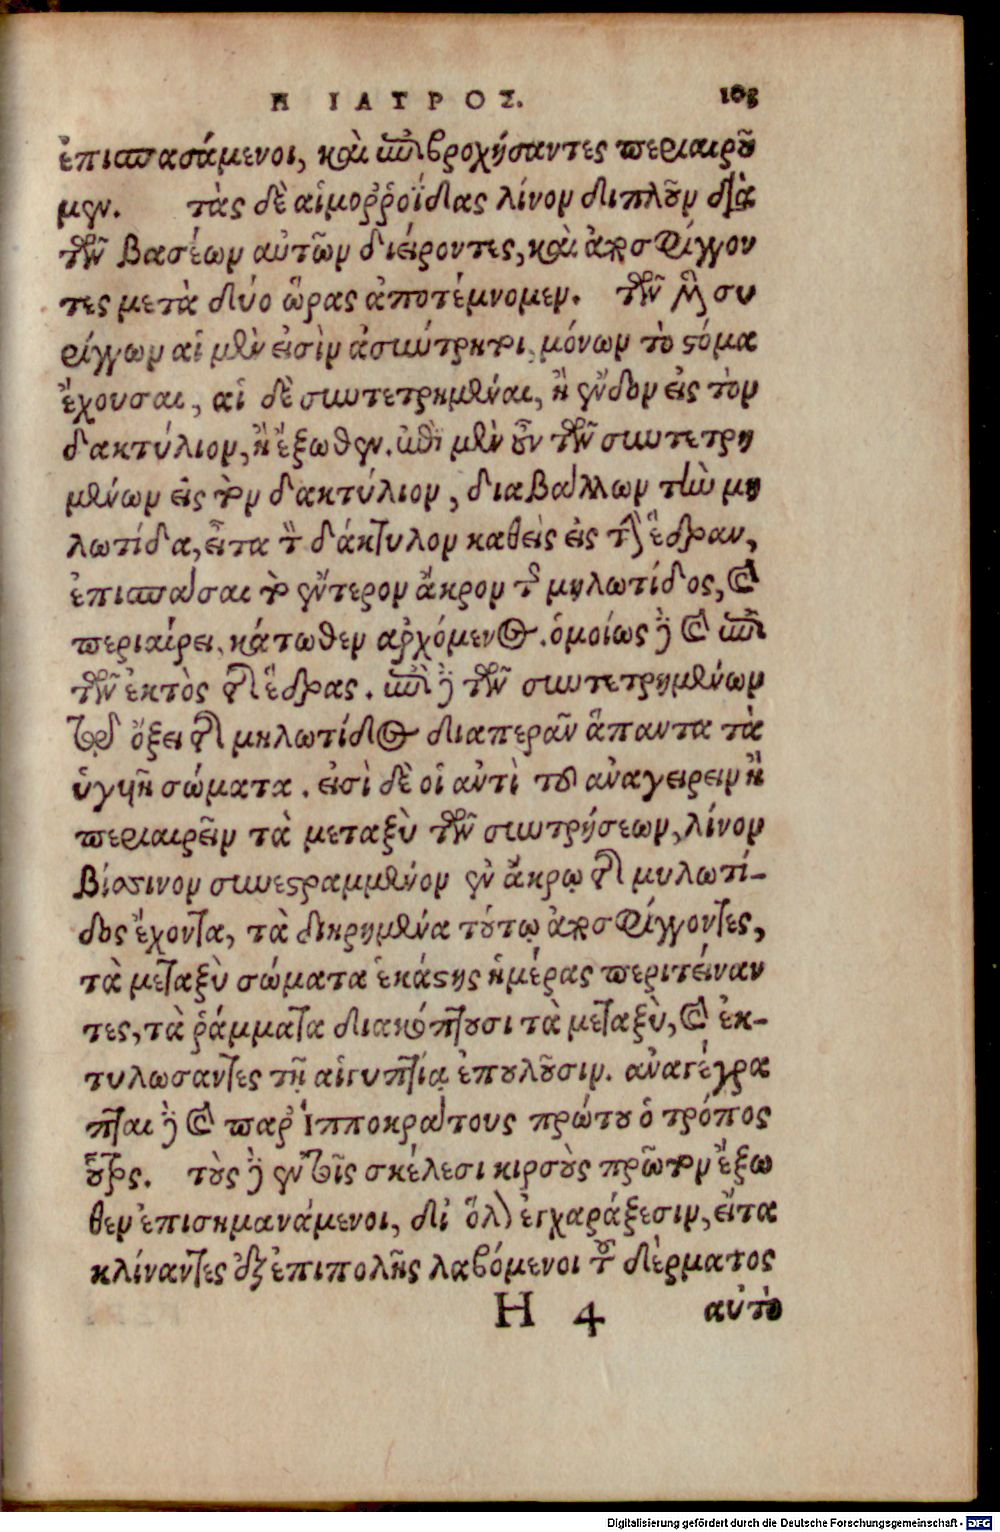 Η ΙΑΤΡΟΣ.
ἐπισπασάμενοι, καὶ ἐπιβροχήσαντες περιαιροῦ
μεν. τὰς δὲ αἱμοῤῥοΐδας λίνον διπλοῦν διὰ
τῶν βασέων αὐτῶν διείροντες, καὶ ἀποσφίγγον
τες μετὰ δύο ὥρας ἀποτέμνομεν. τῶν δὲ συ
ρίγγων αἱ μὲν εἰσὶν ἀσύντρητοι, μόνων τὸ στόμα
ἔχουσαι, αἱ δὲ συντετρημέναι, ἢ ἔνδον εἰς τὸν
δακτύλιον, ἢ ἔξωθεν. ἐπὶ μὲν οὖν τῶν συντετρη
μένων εἰς τὸν δακτύλιον, διαβάλλων τὴν μη
λωτίδα, εἶτα τὸν δάκτυλον καθεὶς εἰς τὴν ἕδραν,
ἐπισπᾶσαι τὸ ἕντερον ἄκρον τῆς μηλωτίδος, καὶ
περιαίρει, κάτωθεν ἀρχόμενος. ὁμοίως δὲ καὶ ἐπὶ
τῶν ἐκτὸς τῆς ἕδρας. ἐπὶ δὲ τῶν συντετρημένων
τῷ ὄξει τῆς μηλωτίδος διαπερᾶν ἅπαντα τὰ
ὑγιῆ σώματα. εἰσὶ δὲ οἱ αὐτὶ τοῦ ἀναγείρειν ἢ
περιαιρεῖν τὰ μεταξὺ τῶν συντρήσεων, λίνον
βίσσινον συνεστραμμένον ἐν ἄκρῳ τῆς μυλωτί-
δος ἔχοντα, τὰ διηρημένα τούτῳ ἀποσφίγγοντες,
τὰ μεταξὺ σώματα ἑκάστης ἡμέρας περιτείναν
τες, τὰ ῥάμματα διακόπτουσι τὰ μεταξὺ, καὶ ἐκ-
τυλωσαντες τῇ αἰγυπτίᾳ ἐπουλοῦσιν. ἀναγέγρα
πται δὲ καὶ παρ Ἱπποκράτους πρώτου ὁ τρόπος
οὗτος. τοὺς δὲ ἐν τοῖς σκέλεσι κιρσοὺς πρῶτον ἔξω
θεν ἐπισημανάμενοι, δι ὅλων ἐγχαράξεσιν, εἶτα
κλίναντες ἐξ ἐπιπολῆς λαβόμενοι τοῦ δέρματος
Η 4 αὐτὸ
Digitalisierung gefördert durch die Deutsche Forschungsgemeinschaft - DFG